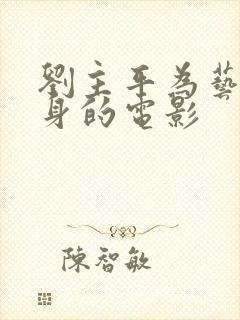 劉主平為藝
身的電影
陳智敏